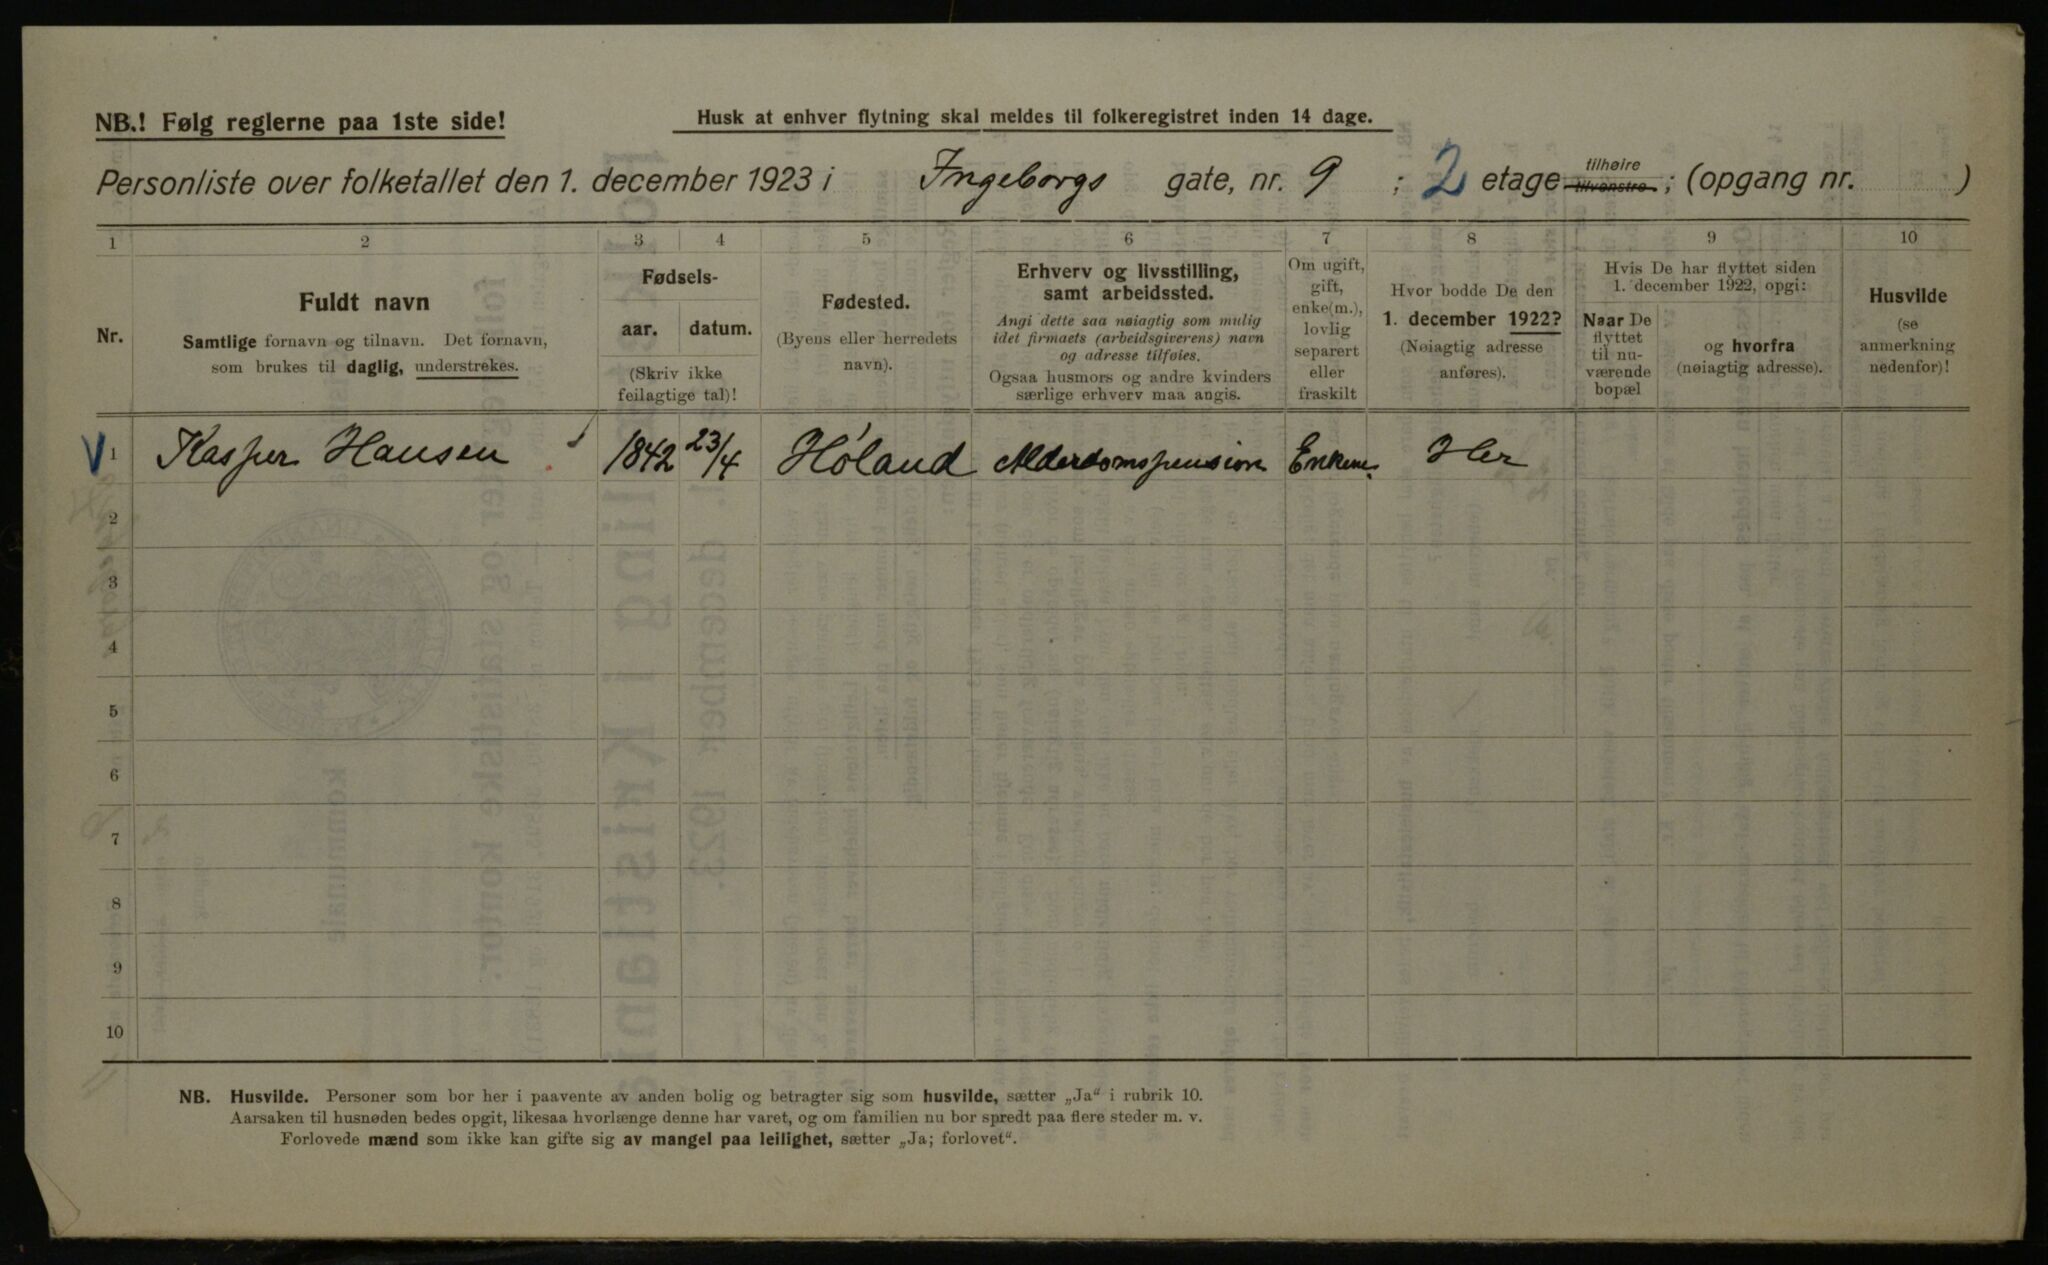 NB.! Følg reglerne paa 1ste side!
Husk at enhver flytning skal meldes til folkeregistret inden 14 dage.
Personliste over folketallet den 1. december 1923 i Ingeborgs gate, nr. 9 ; 2 etage tilhøire tilvenstre ; (opgang nr. )
1 2 3 4 5 6 7 8 9 10
Nr.
Fuldt navn
Samtlige fornavn og tilnavn. Det fornavn,
som brukes til daglig, understrekes.
Fødsels-
aar. datum.
(Skriv ikke
feilagtige tal)!
Fødested.
(Byens eller herredets
navn).
Erhverv og livsstilling,
samt arbeidssted.
Angi dette saa nøiagtig som mulig
idet firmaets (arbeidsgiverens) navn
og adresse tilføies.
Ogsaa husmors og andre kvinders
særlige erhverv maa angis.
Om ugift,
gift,
enke(m.),
lovlig
separert
eller
fraskilt
Hvor bodde De den
1. december 1922?
(Nøiagtig adresse
anføres).
Hvis De har flyttet siden
1. december 1922, opgi:
Naar De
flyttet
til nu-
værende
bopæl
og hvorfra
(nøiagtig adresse).
Husvilde
(se
anmerkning
nedenfor)!
V 1 Kasper Hansen 1842 23/4 Høland Alderdomspension Enkem. Her
2
3
4
5
6
7
8
9
10
NB. Husvilde. Personer som bor her i paavente av anden bolig og betragter sig som husvilde, sætter „Ja“ i rubrik 10.
Aarsaken til husnøden bedes opgit, likesaa hvorlænge denne har varet, og om familien nu bor spredt paa flere steder m. v.
Forlovede mænd som ikke kan gifte sig av mangel paa leilighet, sætter „Ja; forlovet“.